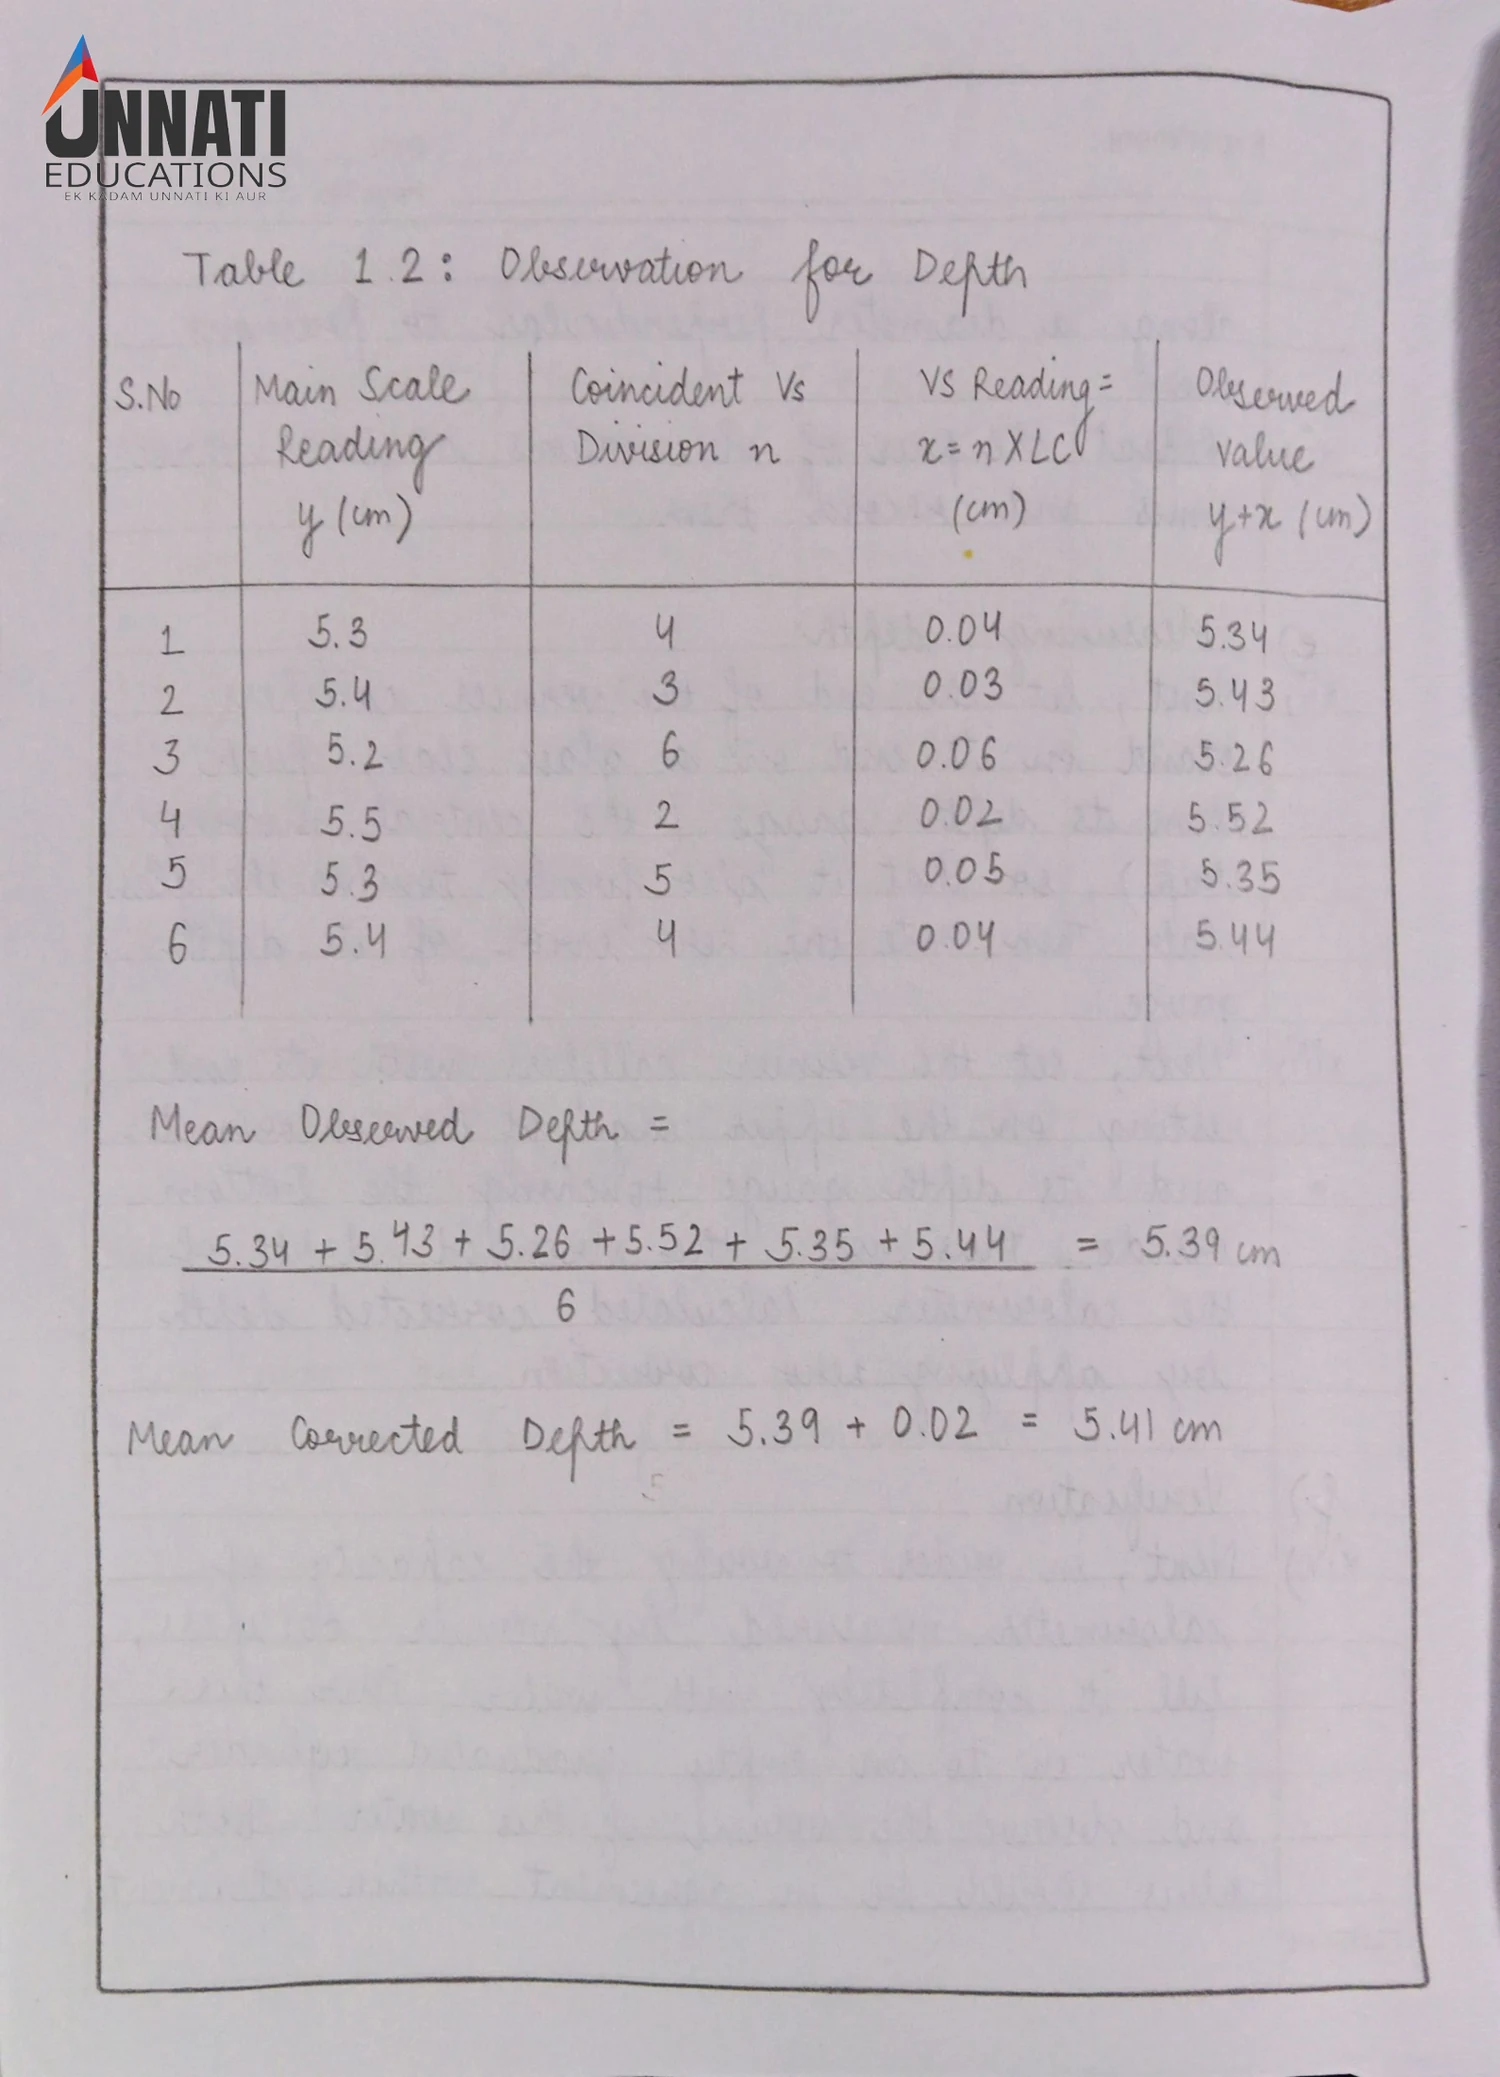 UNNATI
EDUCATIONS
EK KADAM UNNATI KI AUR
Table 1.2: Observation for Depth
S.No | Main Scale Reading y (cm) | Coincident Vs Division n | VS Reading = x = n X LC (cm) | Observed value y+x (cm)
1 5.3 4 0.04 5.34
2 5.4 3 0.03 5.43
3 5.2 6 0.06 5.26
4 5.5 2 0.02 5.52
5 5.3 5 0.05 5.35
6 5.4 4 0.04 5.44
Mean Observed Depth =
5.34 + 5.43 + 5.26 + 5.52 + 5.35 + 5.44 = 5.39 cm
6
Mean Corrected Depth = 5.39 + 0.02 = 5.41 cm